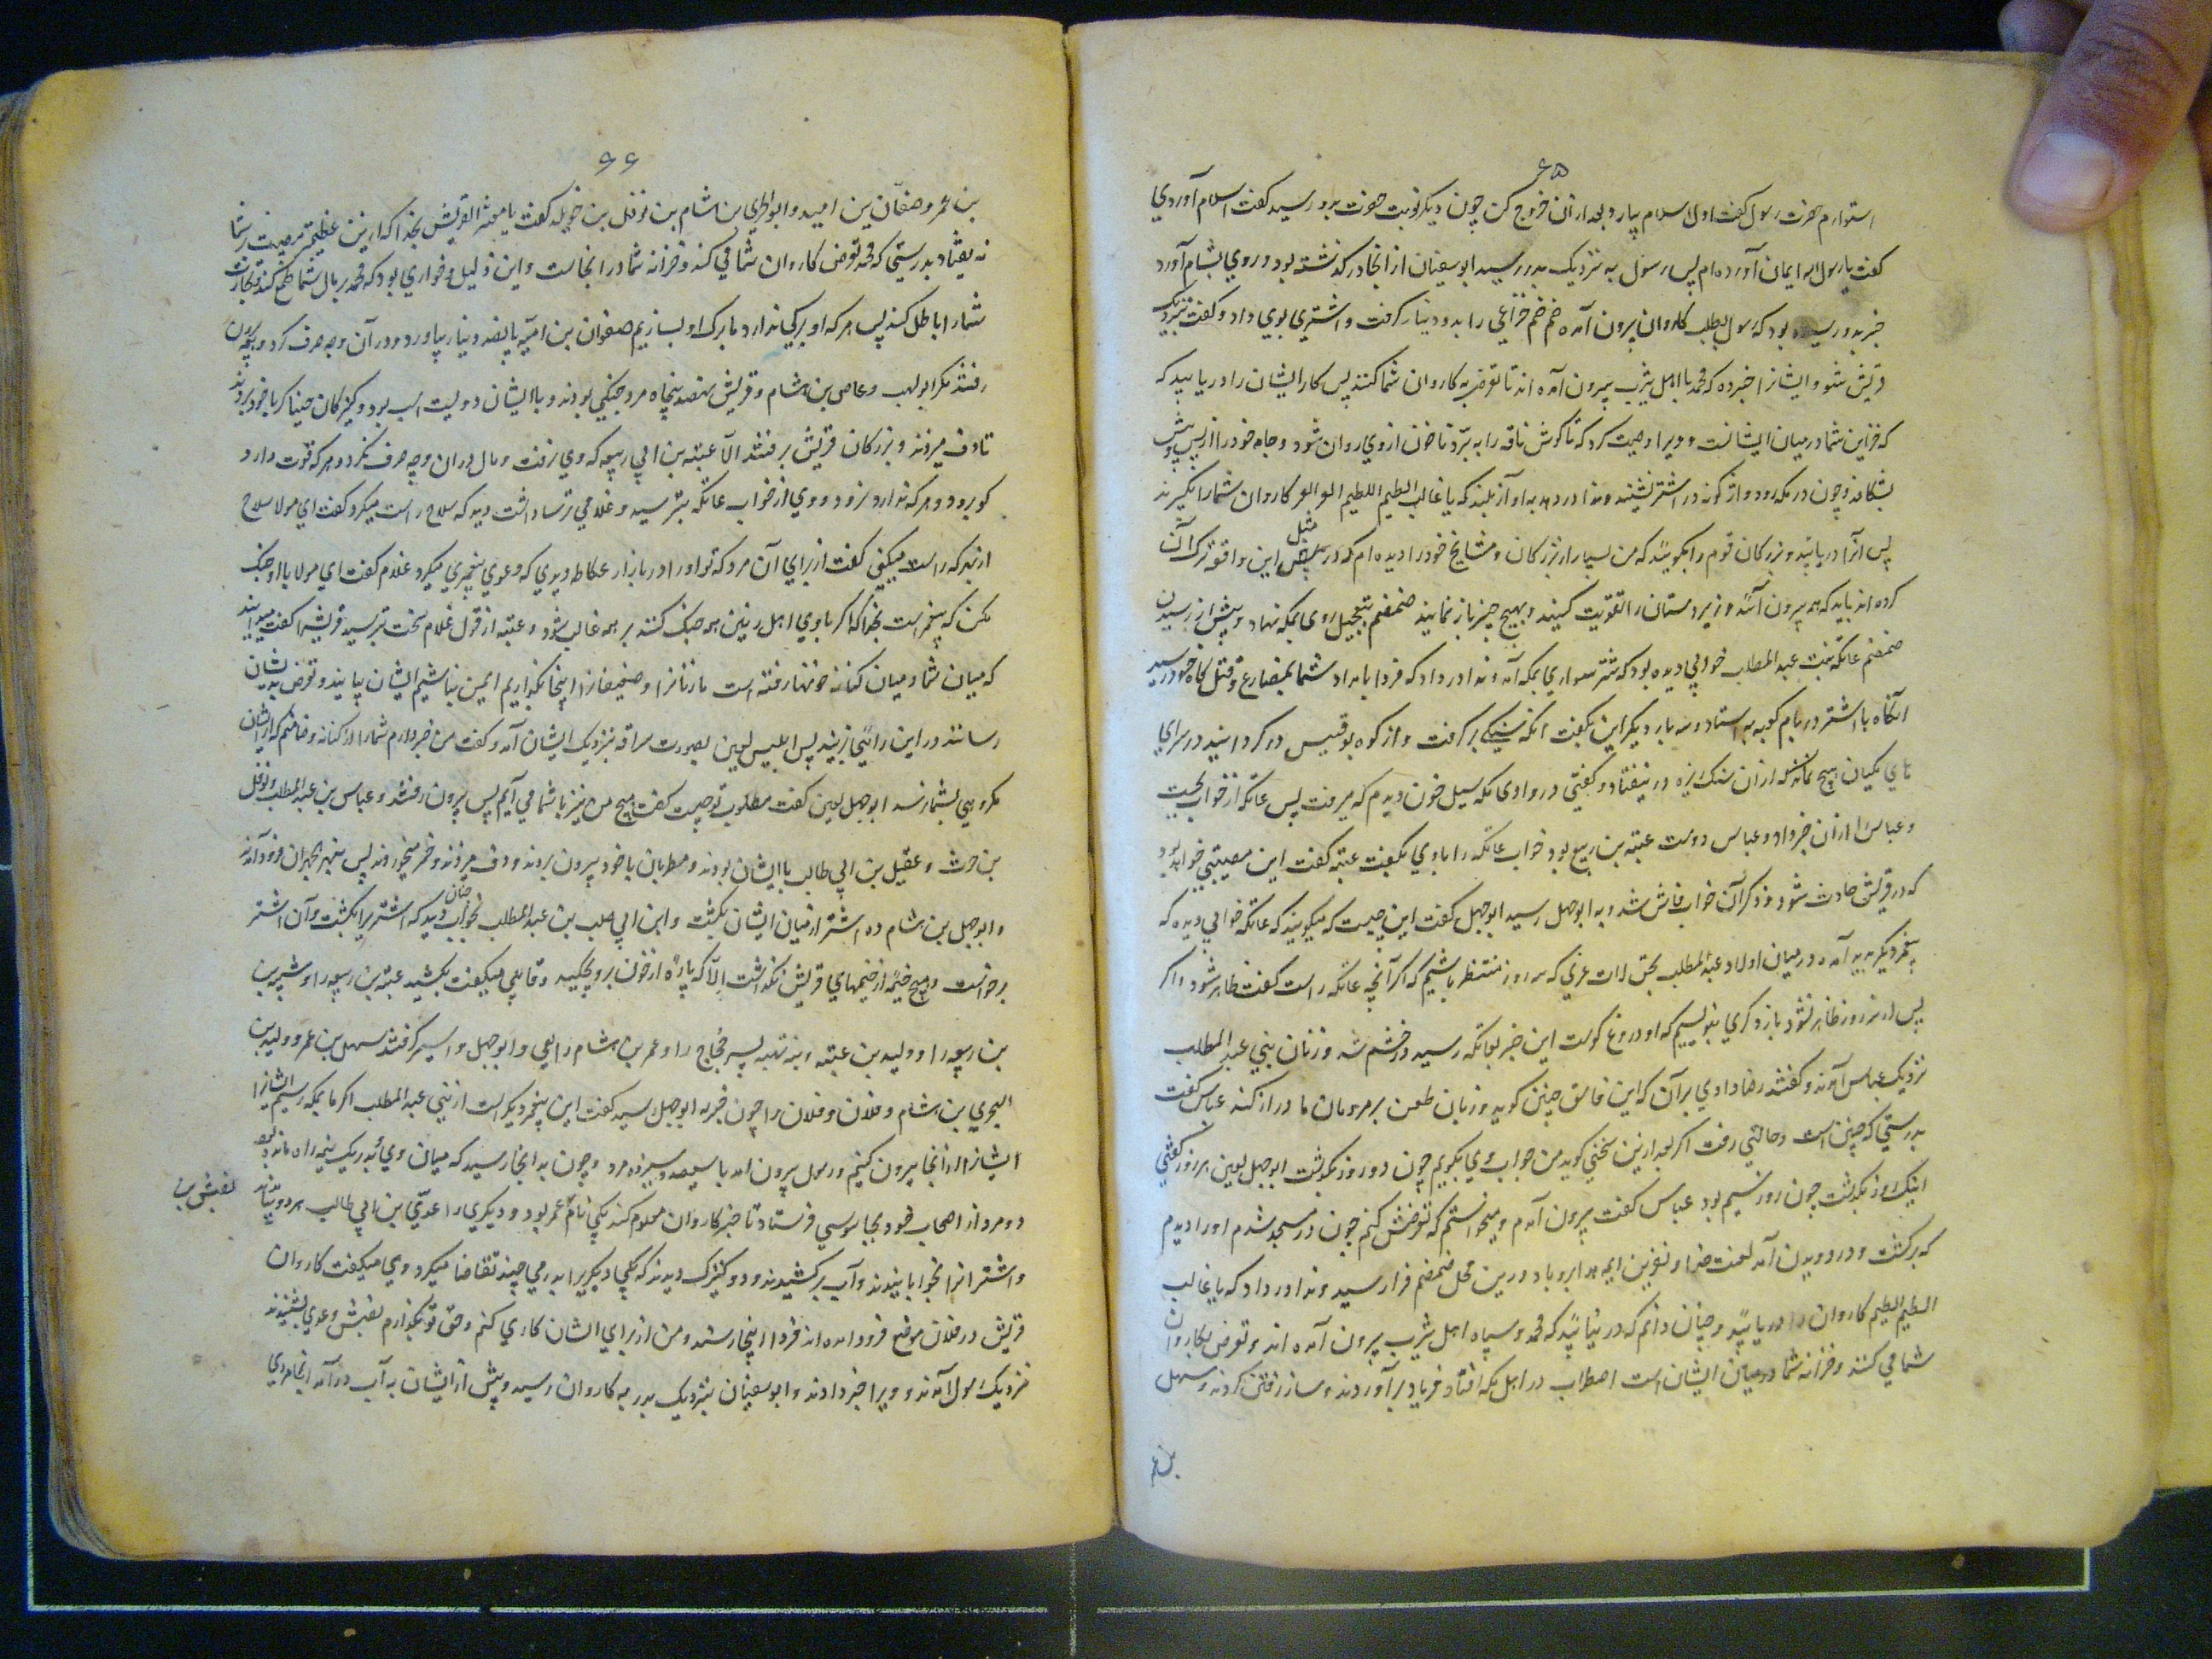 ۶۵
استوارم حضرت رسول گفت اول اسلام بیار و بعد ازان خروج کن چون دیگر نوبت حضرت بدو رسید گفت اسلام آوردی
گفت یا رسول الله ایمان آورده ام پس رسول به نزدیک بدر رسید ابوسفیان از انجا در گذشته بود و روی بشام آورد
خبر بدو رسیده بود که رسول بطلب کاروان بیرون آمده ضمضم خزاعی را بده دینار گرفت و اشتری بوی داد و گفت نزدیک
قریش شو و ایشانرا خبر ده که محمد با اهل یثرب بیرون آمده اند تا تعرض به کاروان شما کنند پس کار ایشان را دریابید که
که خزاین شما در میان ایشانست و ویرا وصیت کرد که تا گوش ناقه را به برد تا خون ازوی روان شود و جامه خود را از پس و پیش
بشکافد و چون در مکه رود واژگونه در اشتر نشیند و ندا در دهد به آواز بلند که یا غالب اللطیم اللطیم العیر العیر کاروان شما را بگیرند
پس آنرا دریابید و بزرگان قوم را بگویید که من بسیار از بزرگان و مشایخ خود را دیده ام که در مثل این واقعه ترک آن
کرده اند باید که همه بیرون آیند و زیردستان را تقویت کنید و بهیچ چیز باز نمانید ضمضم بتعجیل روی بمکه نهاد و پیش از رسیدن
ضمضم عاتکه بنت عبدالمطلب خوابی دیده بود که شتر سواری بمکه آمد و ندا در داد که فردا بامداد شما بمصارع و قتل گاه خود رسید
آنگاه با اشتر در بام کعبه به استاد و سه بار دیگر این بگفت آنگه سنگی بر گرفت و از کوه بوقبیس در گردانید در سرای
های مکیان هیچ نماند که ازان سنگ ریزه در نیفتاد و گفتی در وادی مکه سیل خون دیدم که میرفت پس عاتکه از خواب بجست
و عباس را ازان خبر داد و عباس دوست عتبه بن ربیع بود خواب عاتکه را باوی بگفت عتبه گفت این مصیبتی خواهد بود
که در قریش حادث شود و ذکر آن خواب فاش شد و به ابوجهل رسید ابوجهل گفت این چیست که میگویند که عاتکه خوابی دیده که
پیغمبر دیگر پدید آمده در میان اولاد عبدالمطلب بحق لات و عزی که سه روز منتظر باشیم که اگر آنچه عاتکه راست گفت ظاهر شود و اگر
پس از سه روز ظاهر نشود باز ذکری بنویسیم که او دروغ گوست این خبر بعاتکه رسید در خشم شد و زنان بنی عبدالمطلب
نزدیک عباس آمدند و گفتند رضا دادی بر آن که این فاسق چنین گوید و زبان طعن بر مردمان ما دراز کند عباس گفت
بدرستی که چنین است و حالتی رفت اگر بعد ازین سخنی گوید من جواب وی بگویم چون دو روز بگذشت ابوجهل لعین هر روز گفتی
اینک روز بگذشت چون روز سیم بود عباس گفت بیرون آمدم و میخواستم که تعرضش کنم چون در مسجد شدم او را دیدم
که برگشت و در دویدن آمد لعنت خدا و نفرین ایمه هدا برو باد درین محل ضمضم فرا رسید و ندا در داد که یا غالب
اللطیم اللطیم کاروان را دریابید و چنان دانم که در نیابید که محمد و سپاه اهل یثرب بیرون آمده اند و تعرض بکاروان
شما می کنند و خزانه شما در میان ایشان است اضطراب در اهل مکه افتاد فریاد برآوردند و ساز رفتن کردند و سهیل
بن عمر
۶۶
بن عمر و صفوان بن امیه و ابوالبختری بن هشام بن نوفل بن خویلد گفت یا معشر القریش بخدا که ازین عظیمتر مصیبت شما را
نه یفتاد بدرستی که محمد تعرض کاروان شما می کند و خزانه شما در انجاست و این ذلیلی و خواری بود که محمد بمال شما طمع کند و تجارت
شما را باطل کند پس هر که او برگی ندارد ما برگ او بسازیم صفوان بن امیه پانصد دینار بیاورد و در آن وجه صرف کرد و همه بیرون
رفتند مگر ابولهب و عاص بن هشام و قریش نهصد پنجاه مرد جنگی بودند و با ایشان دویست اسب بود و کنیزکان خنیاگر با خود بردند
تا دف میزدند و بزرگان قریش برفتند الا عتبه بن ابی ربیعه که وی نرفت و مال دران وجه صرف نکرد و هر که قوت دارد
کو برود و هر که ندارد نرود و وی از خواب عاتکه بترسید و غلامی ترسا داشت دید که سلاح راست میکرد گفت ای مولا سلاح
از بهر که راست میکنی گفت از برای آن مرد که تو او را در بازار عکاظ دیدی که دعوی پیغمبری میکرد غلام گفت ای مولا با او جنگ
مکن که پیغمبر است بخدا که اگر باوی اهل زمین همه جنگ کنند بر همه غالب شود و عتبه از قول غلام سخت بترسید قریش را گفت میدانید
که میان شما و میان کنانه خونها رفته است ما زنانرا و ضعیفانرا اینجا بگذاریم ایمن نباشیم ایشان بیایند و تعرض بدیشان
رسانند در این رائی بزنید پس ابلیس لعین بصورت سراقه نزدیک ایشان آمد و گفت من خبر دارم شما را از کنانه و ضامنم که از ایشان
مکروهی بشما رسد ابوجهل لعین گفت مطلوب تو چیست گفت هیچ من نیز با شما می آیم پس بیرون رفتند و عباس بن عبدالمطلب و نوفل
بن حرث و عقیل بن ابی طالب با ایشان بودند و مطربان با خود بیرون بردند و دف میزدند و خمر میخوردند پس بنهر الحیران فرود آمدند
و ابوجهل بن هشام ده اشتر از میان ایشان بکشت و ابن ابی صلب بن عبدالمطلب بخواب چنان دید که اشتر برا بکشت و آن اشتر
برخواست و هیچ خیمه از خیمهای قریش نگذاشت الا که پاره از خون برو بچکید و قایلی میگفت بکشید عتبه بن ربیعه را و شیبه بن
بن ربیعه را و ولید بن عتبه و بنه نبیه پسر حجاج را و عمر بن هشام را یعنی و ابوجهل و اسیر گرفتند سهیل بن عمر و ولید بن
البحری بن هشام و فلان و فلان را چون خبر به ابوجهل رسید گفت این پیغمبر دیگر است از بنی عبدالمطلب اگر ما بمکه رسیم ایشانرا
ایشانرا از انجا بیرون کنیم و رسول بیرون آمد با سیصد و سیزده مرد و چون به انجا رسید که میان وی و بدر یک نیمه راه مانده بود
دو مرد از اصحاب خود بجاسوسی فرستاد تا خبر کاروان معلوم کند یکی نام عمر بود و دیگری را عدی بن ابی طالب هر دو بیامدند
و اشترانرا بخوابانیدند و آب برکشیدند و دو کنیزک دیدند که یکی دیگریرا به درمی چند تقاضا میکرد وی میگفت کاروان
قریش در فلان موضع فرود آمده اند فردا اینجا رسند و من از برای ایشان کاری کنم و حق تو بگذارم بعبش و عدی بشنیدند
نزدیک رسول آمدند و ویرا خبر دادند و ابوسفیان نزدیک بدر به کاروان رسید و پیش از ایشان به آب درآمد انجا مردی
بعبش بن